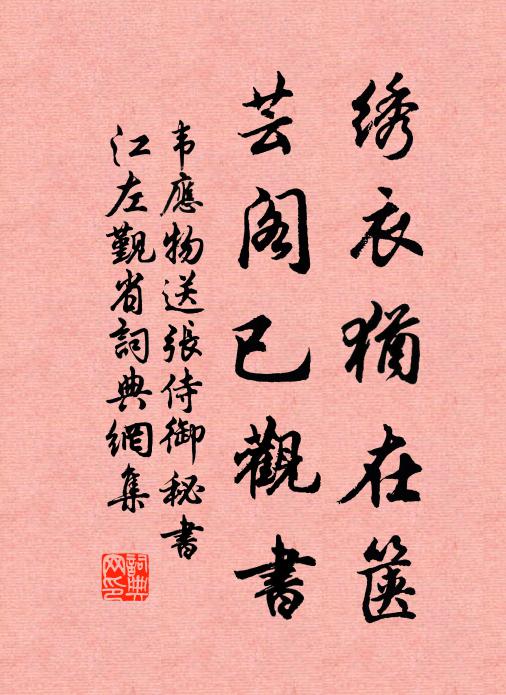 绣衣猶在篋
芸阁已觀書
韦應物送張侍御秘書
江左觐省詞典網集
詞典网印